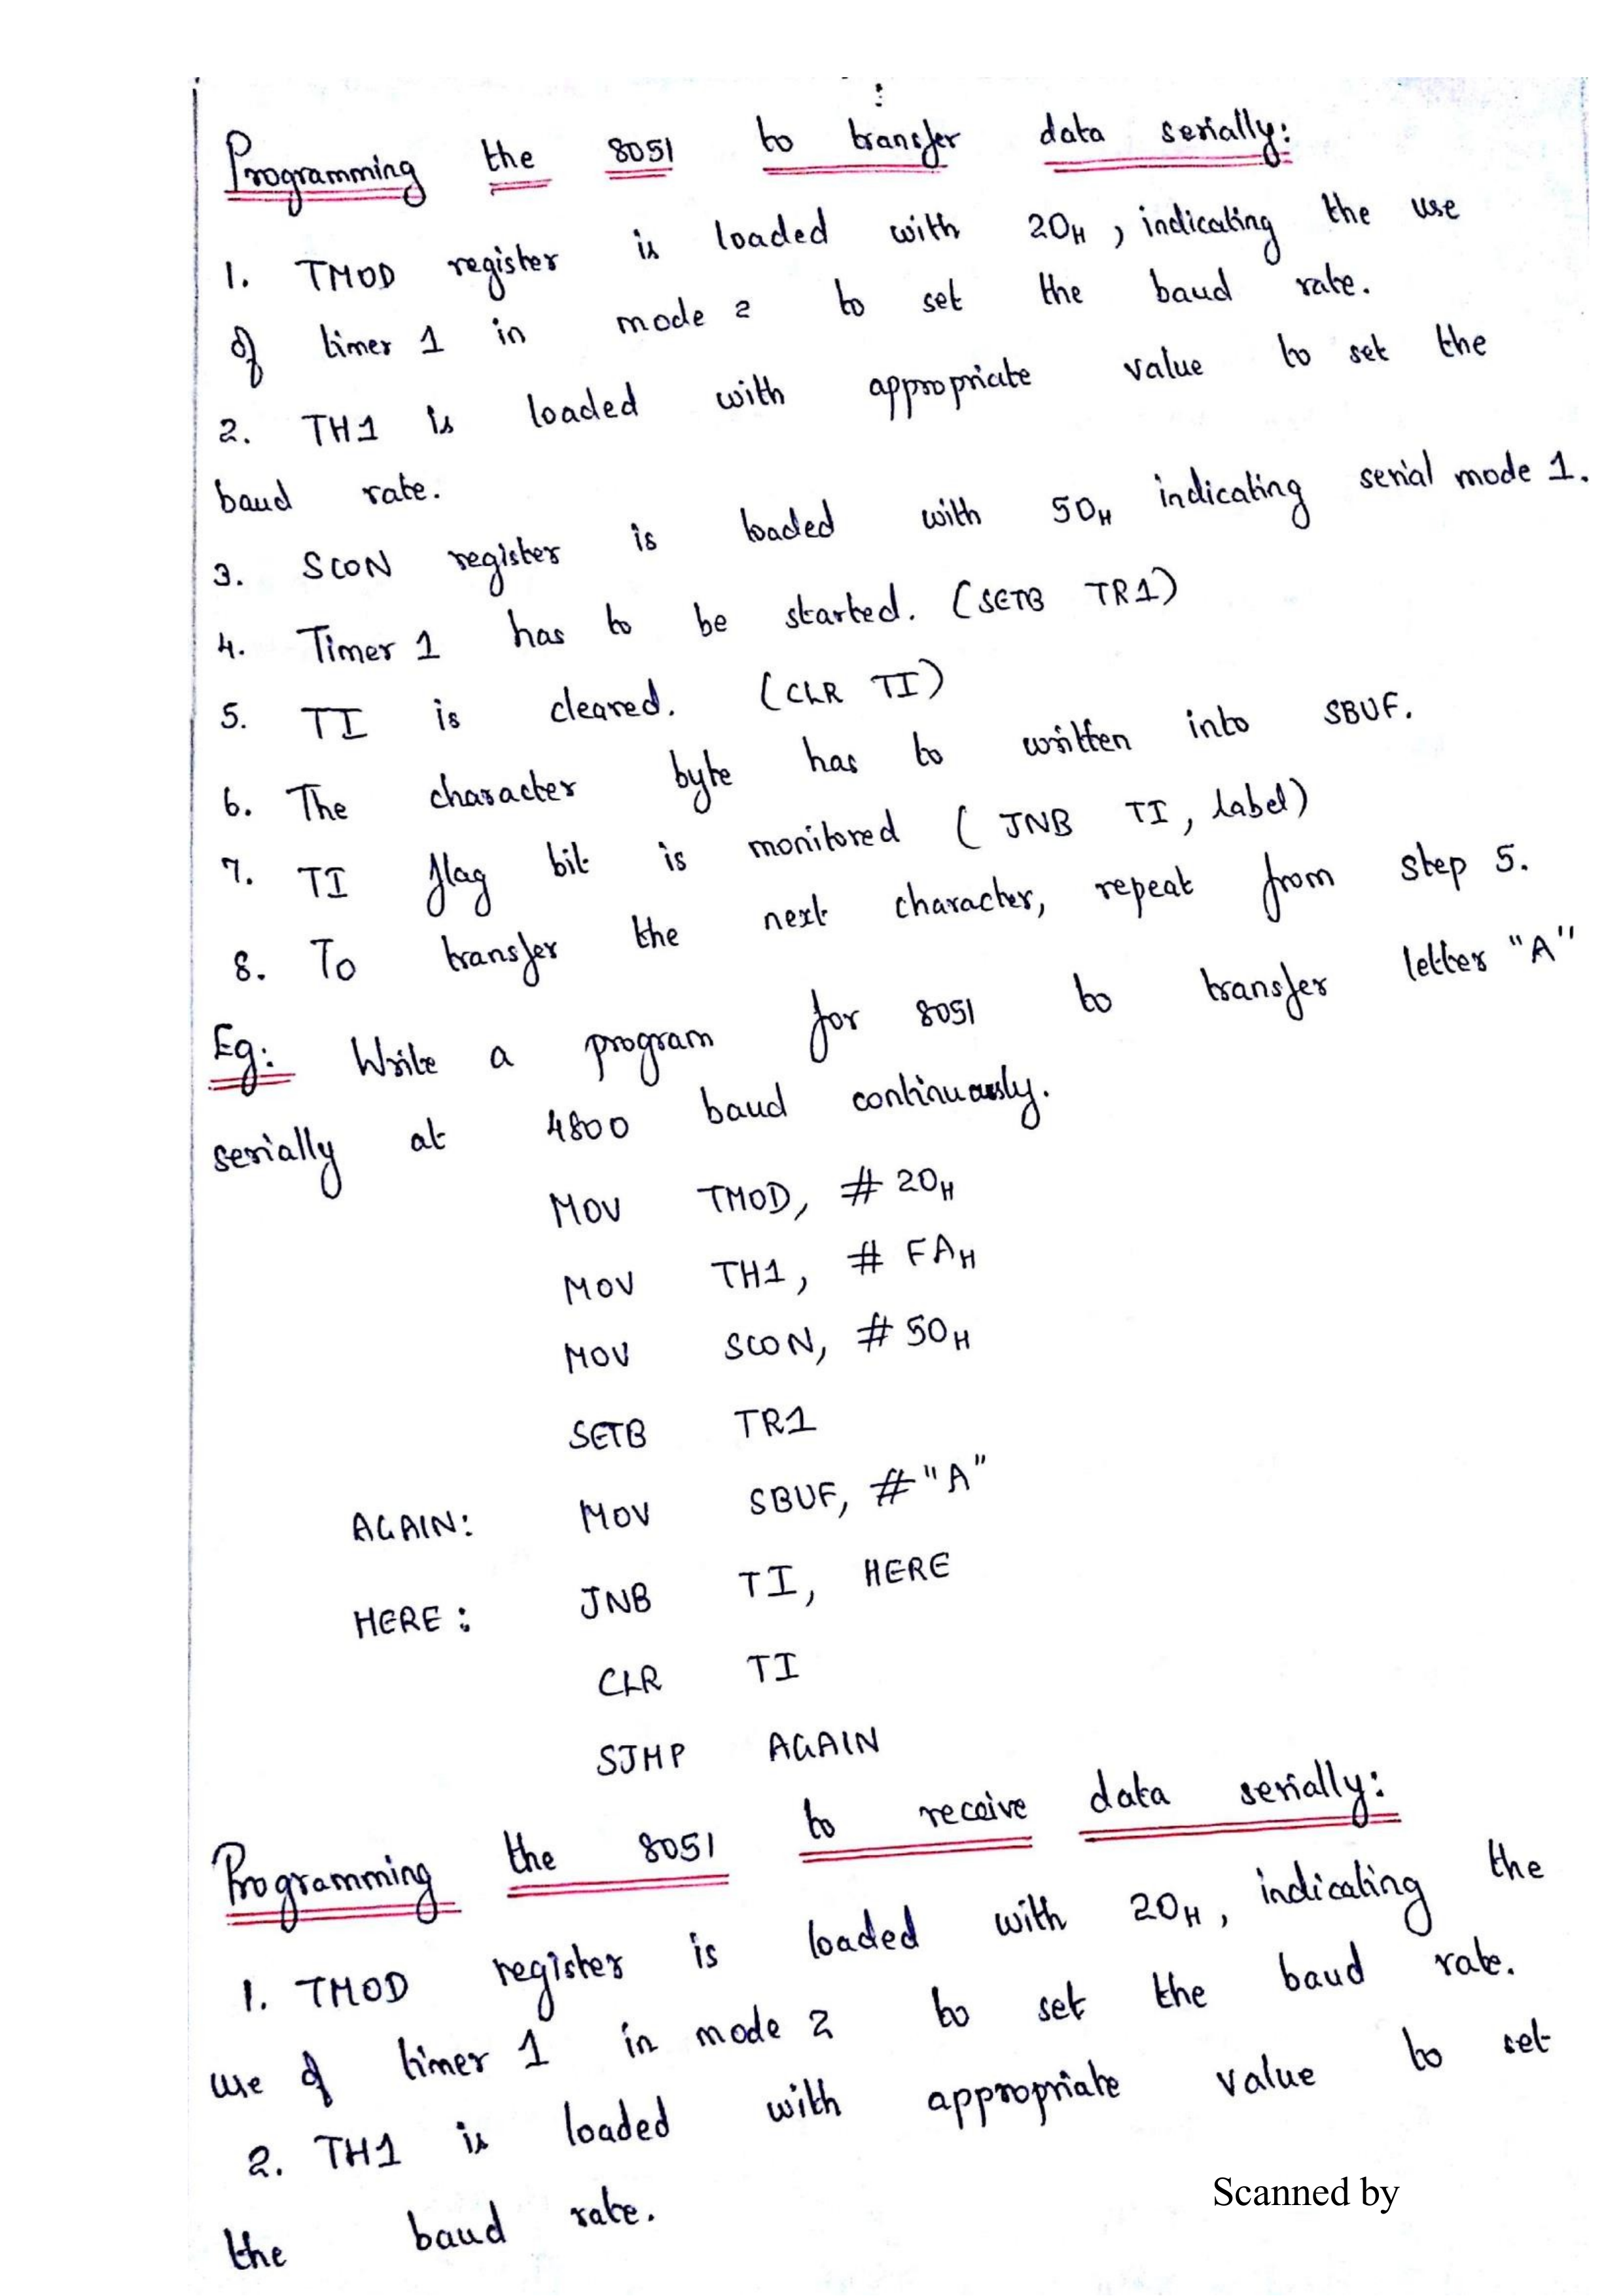 Programming the 8051 to transfer data serially:
1. TMOD register is loaded with 20H, indicating the use
of timer 1 in mode 2 to set the baud rate.
2. TH1 is loaded with appropriate value to set the
baud rate.
3. SCON register is loaded with 50H indicating serial mode 1.
4. Timer 1 has to be started. (SETB TR1)
5. TI is cleared. (CLR TI)
6. The character byte has to written into SBUF.
7. TI flag bit is monitored (JNB TI, label)
8. To transfer the next character, repeat from step 5.
Eg: Write a program for 8051 to transfer letter "A"
serially at 4800 baud continuously.
MOV TMOD, #20H
MOV TH1, #FAH
MOV SCON, #50H
SETB TR1
AGAIN: MOV SBUF, #"A"
HERE: JNB TI, HERE
CLR TI
SJMP AGAIN
Programming the 8051 to receive data serially:
1. TMOD register is loaded with 20H, indicating the
use of timer 1 in mode 2 to set the baud rate.
2. TH1 is loaded with appropriate value to set
the baud rate.
Scanned by